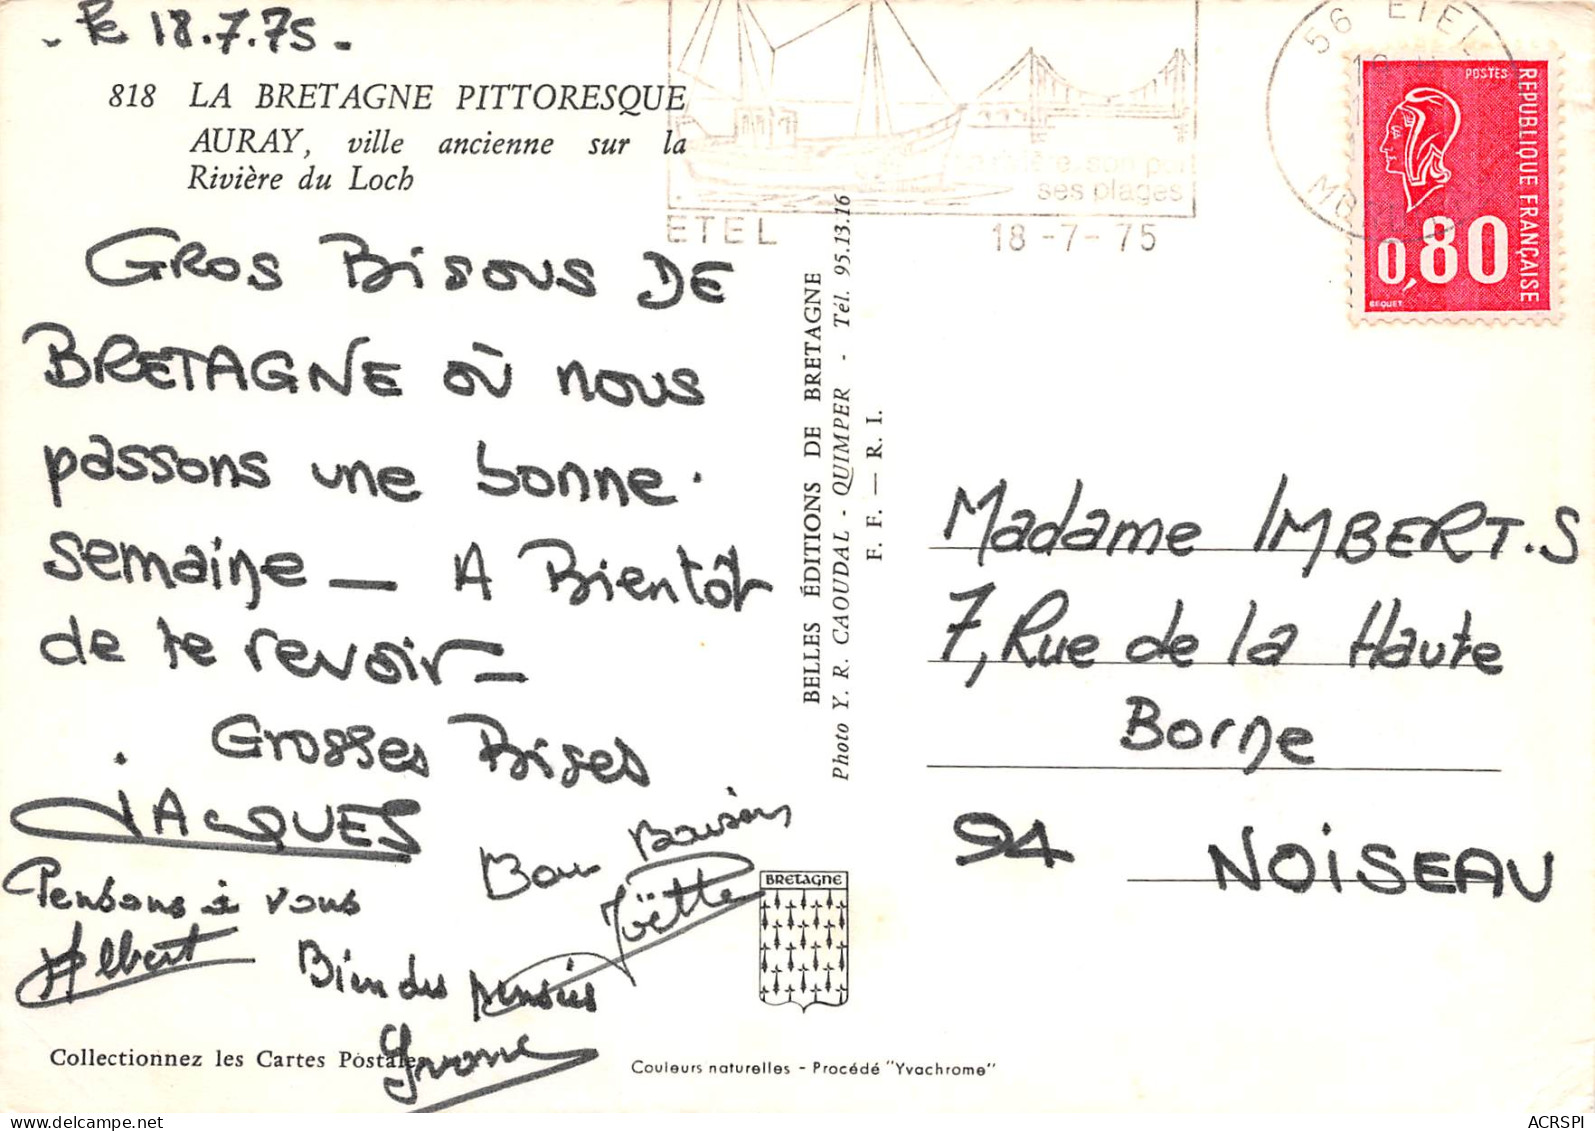 - le 18.7.75 -
818 LA BRETAGNE PITTORESQUE
AURAY, ville ancienne sur la
Rivière du Loch
GROS BISOUS DE
BRETAGNE OÙ nous
passons une bonne.
semaine — A Bientôt
de te revoir —
Grosses Bises
JACQUES
Bons Baisers
Joëtte
Pensons à vous
Albert
Bien des pensées
Yvonne
Collectionnez les Cartes Postales
Couleurs naturelles - Procédé "Yvachrome"
BRETAGNE
BELLES ÉDITIONS DE BRETAGNE
Photo Y. R. CAOUDAL - QUIMPER - Tél. 95.13.16
F. F. — R. I.
rivière, son port
ses plages
ETEL
18-7-75
56 ETEL
POSTES
REPUBLIQUE FRANÇAISE
0,80
BEQUET
Madame IMBERT.S
7, Rue de la Haute
Borne
94 NOISEAU
ACRSPI